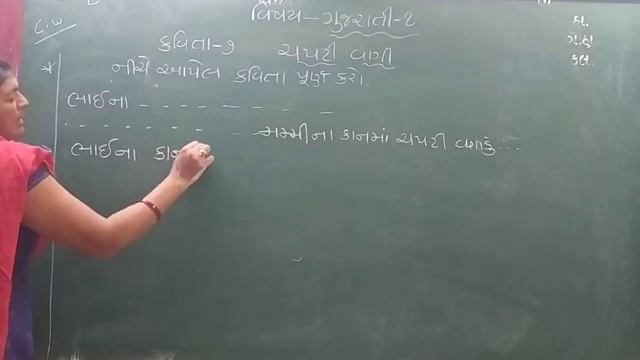 C.W
વિષય - ગુજરાતી-૧
કવિતા-૭ ચપટી વણી
* નીચે આપેલ કવિતા પૂર્ણ કરો.
ભાઈના - - - - - - - -
- - - - - - - - મમ્મીના કાનમાં ચપટી વગાડું...
ભાઈના કાન